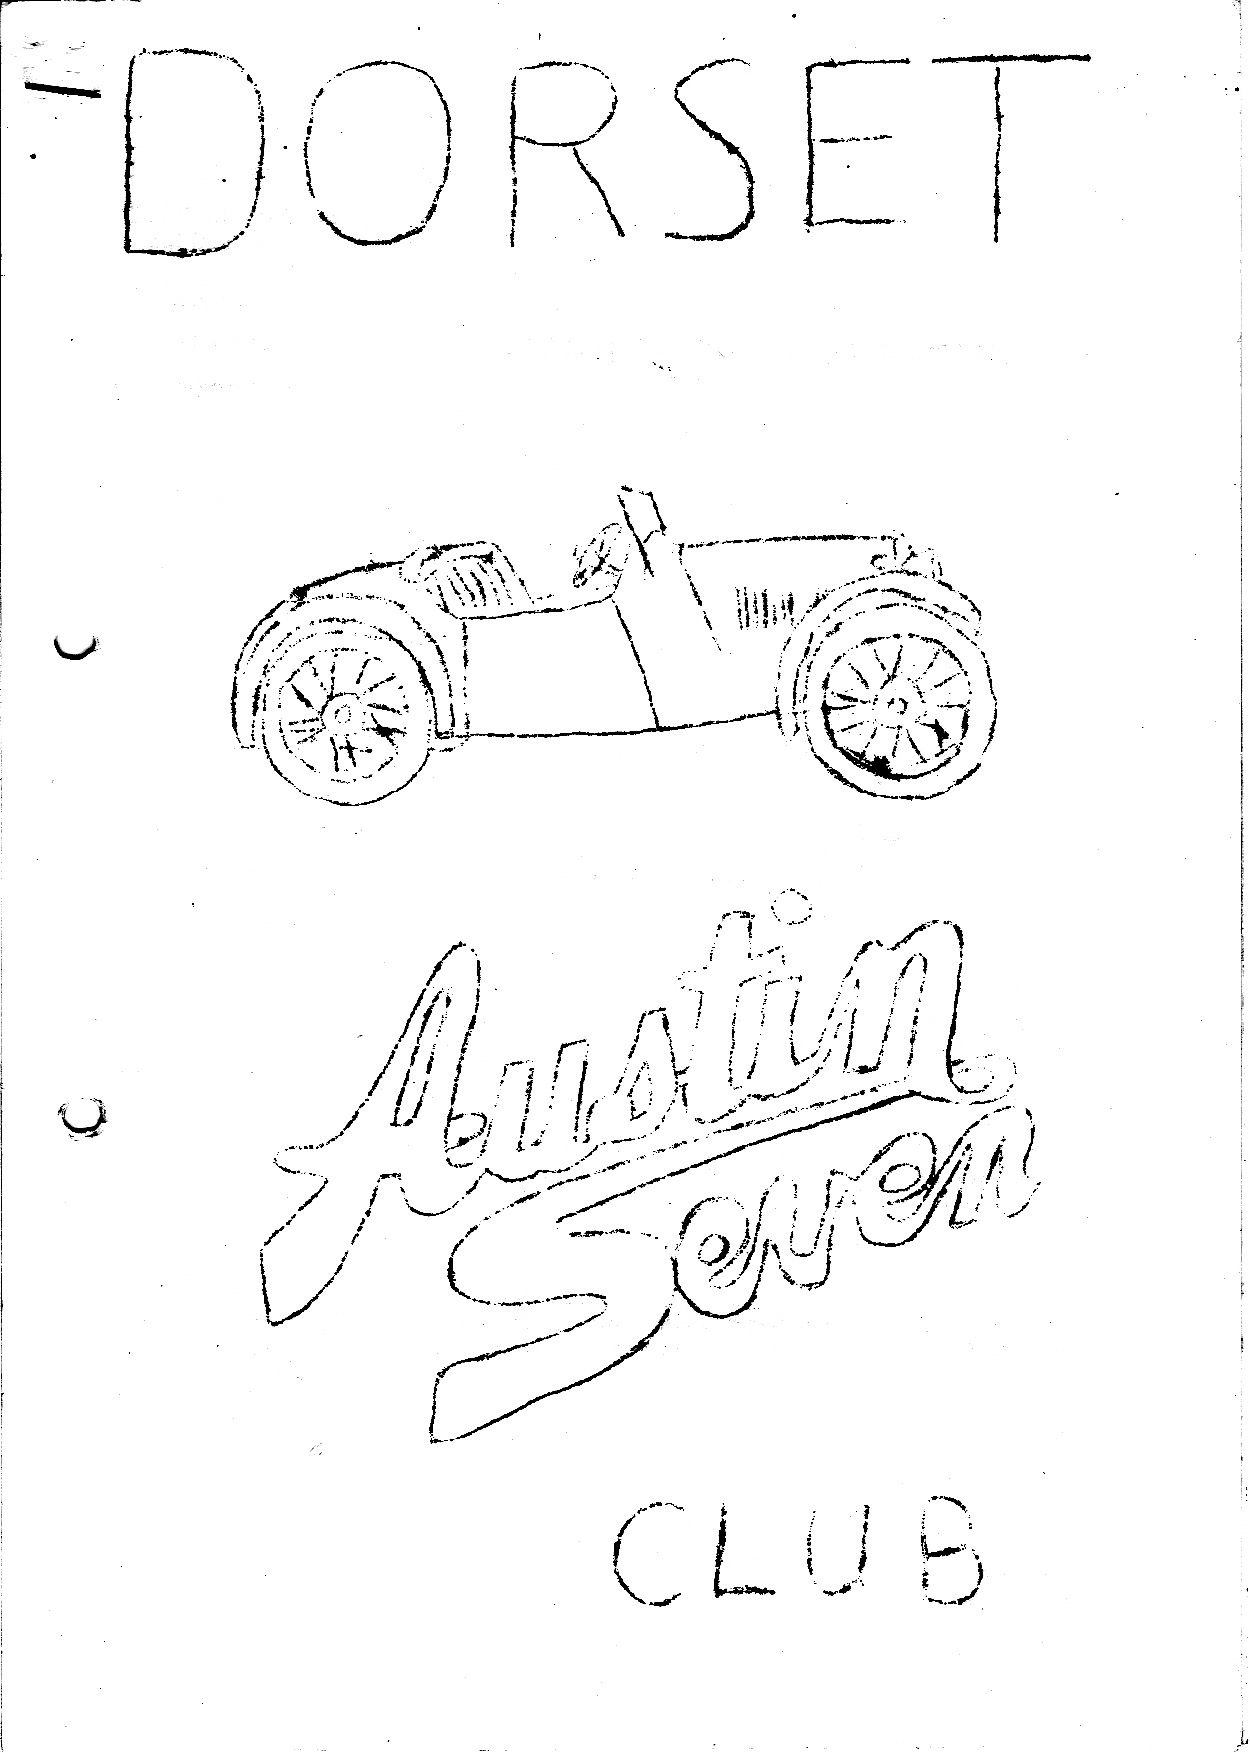 DORSET
Austin
Seven
CLUB